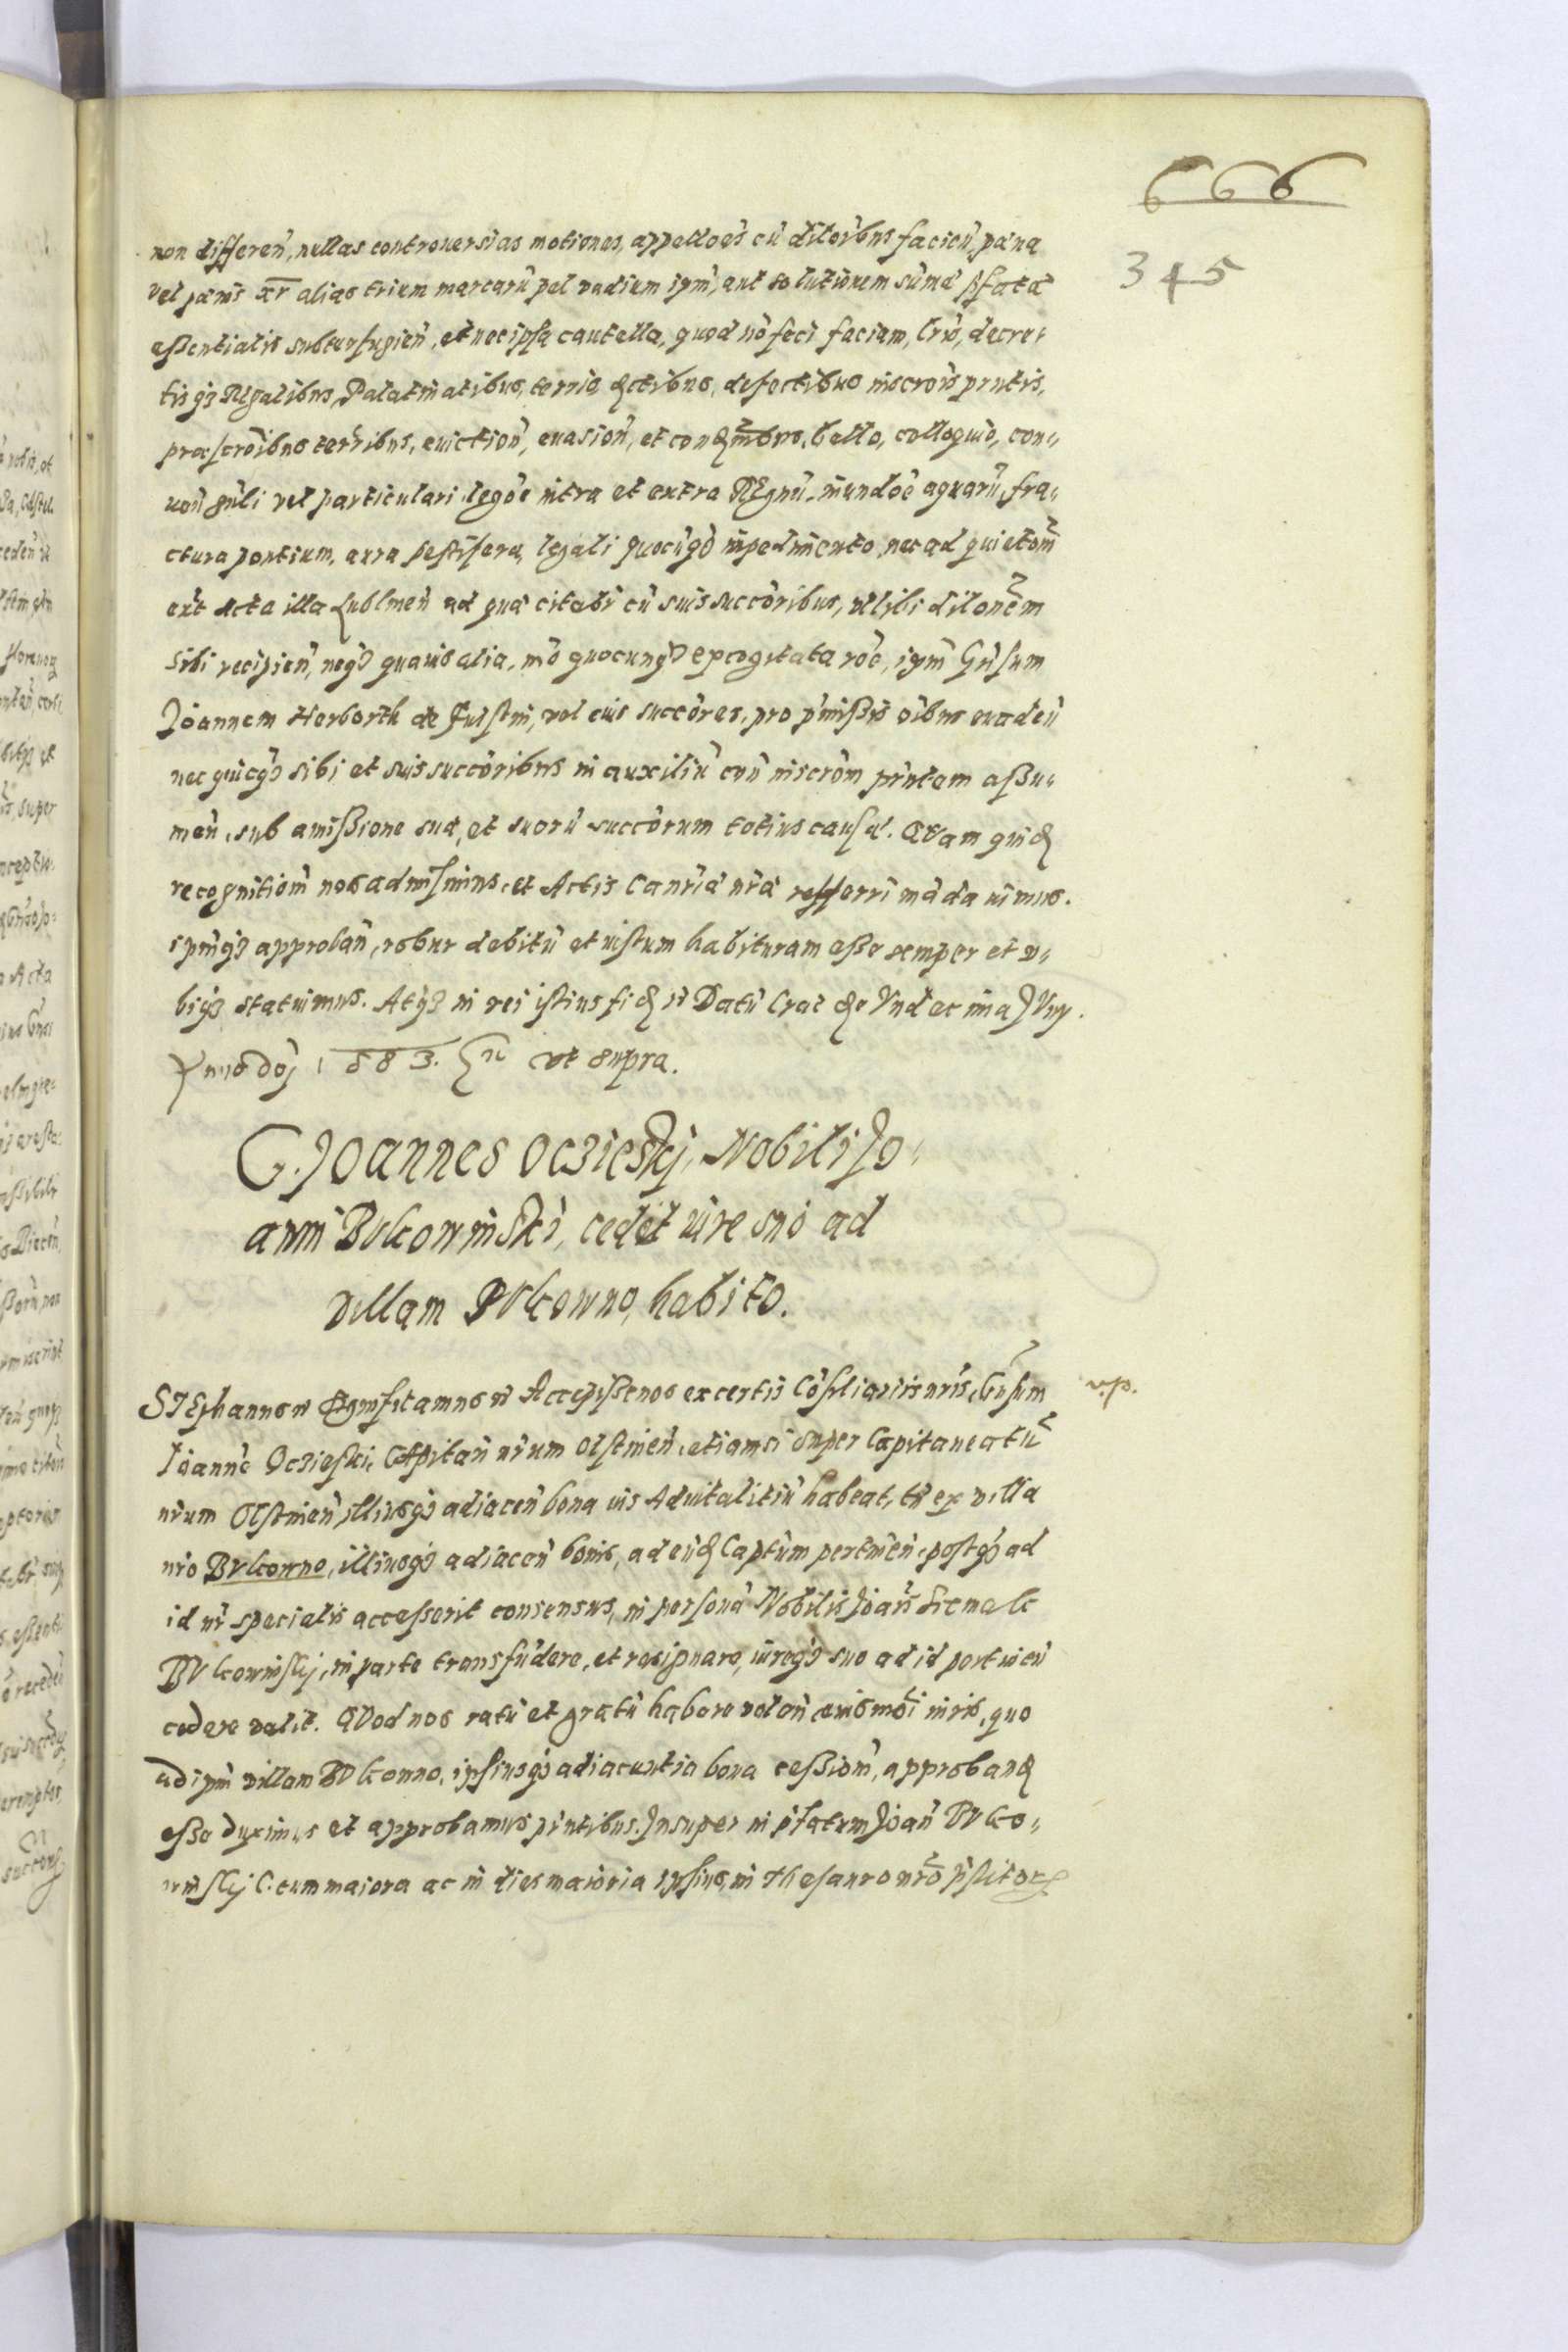 666
345
non differeñ, nullas controuersias motiones, appelloēs cū dilōibus facieñ, pæna
vel pænis xv alias trium marcarū pel vadium ipm̄, aut solutionem sūmæ pfatæ
eßentialis subterfugieñ, et nec ipsa cautella, quod nō feci faciam, lrīs, decre-
tisqȝ REgalibus, Palatinatibus, terris, defectibus inscrōis pn̄tis,
præscrōibus terribus, euictioñ, euasioñ, et bello, colloquio, con-
uoñ gn̄li vel particulari, legōe intra et extra REgnū, inundōe aquarū, fra-
ctura pontium, aura pestifera, legali quocūqȝ impedimento, nec ad quietom̄
ext Acta illa Lublineñ ad quæ citabr̄ cū suis succōribus, vl sibi dilonēm
sibi recipieñ, neqȝ quauis alia, mō quocunqȝ excogitata rōe, ipm̄ Gn̄sum
Joannem Herborth de Fulstin, vel eius succōres, pro pmißis oībus euadeñ
nec quicqȝ sibi et suis succōribus in auxiliū cōn inscrōm pn̄tem aßu-
meñ, sub amißione suæ, et suorū succōrum totius causæ. QVam quid
recognitiom̄ nos admisimus, et Actis Canriæ nr̄æ refferri mādauimus.
ipmqȝ approbañ, robur debitū et iustum habituram eße semper et v-
biqȝ statuimus. Atqȝ in rei istius fid Datū Crac die Vndecima JVny.
Anno Doj 1583. ut supra.
G. JOannes Oczieskj, Nobili Jo-
anni BVkowinski, cedit iure suo ad
villam BVkowno, habito.
v.p.
STEphannus Significamus Accepißenos ex certis Cōsiliarijs nr̄is, Gn̄sum
Joannē Oczieski, CApitañ nr̄um Olstineñ, etiamsi super Capitaneatū
nr̄um Olstineñ, illiusqȝ adiaceñ bona ius Aduitalitiū habeat, tn̄ ex villa
nr̄o BVkowno, illiusqȝ adiaceñ bonis, ad eūd Captum pertineñ, postqȝ ad
id nr̄ specialis accesserit consensus, in personā Nobilis Joañ Siemek
BVkowinskj, in parte transfūdere, et resignare, iureqȝ suo ad id pertineñ
cedere velit. QVod nos ratū et gratū habere voleñ euismōi iuris, quo
ad ipm̄ villam BVkowno, ipsiusqȝ adiacentia bona ceßiom̄, approband
eße duximus et approbamus pn̄tibus. Insuper in pfatum Joañ BVko-
winskj cum maiora ac in dies maioria ipsius, in Thesauro nr̄o